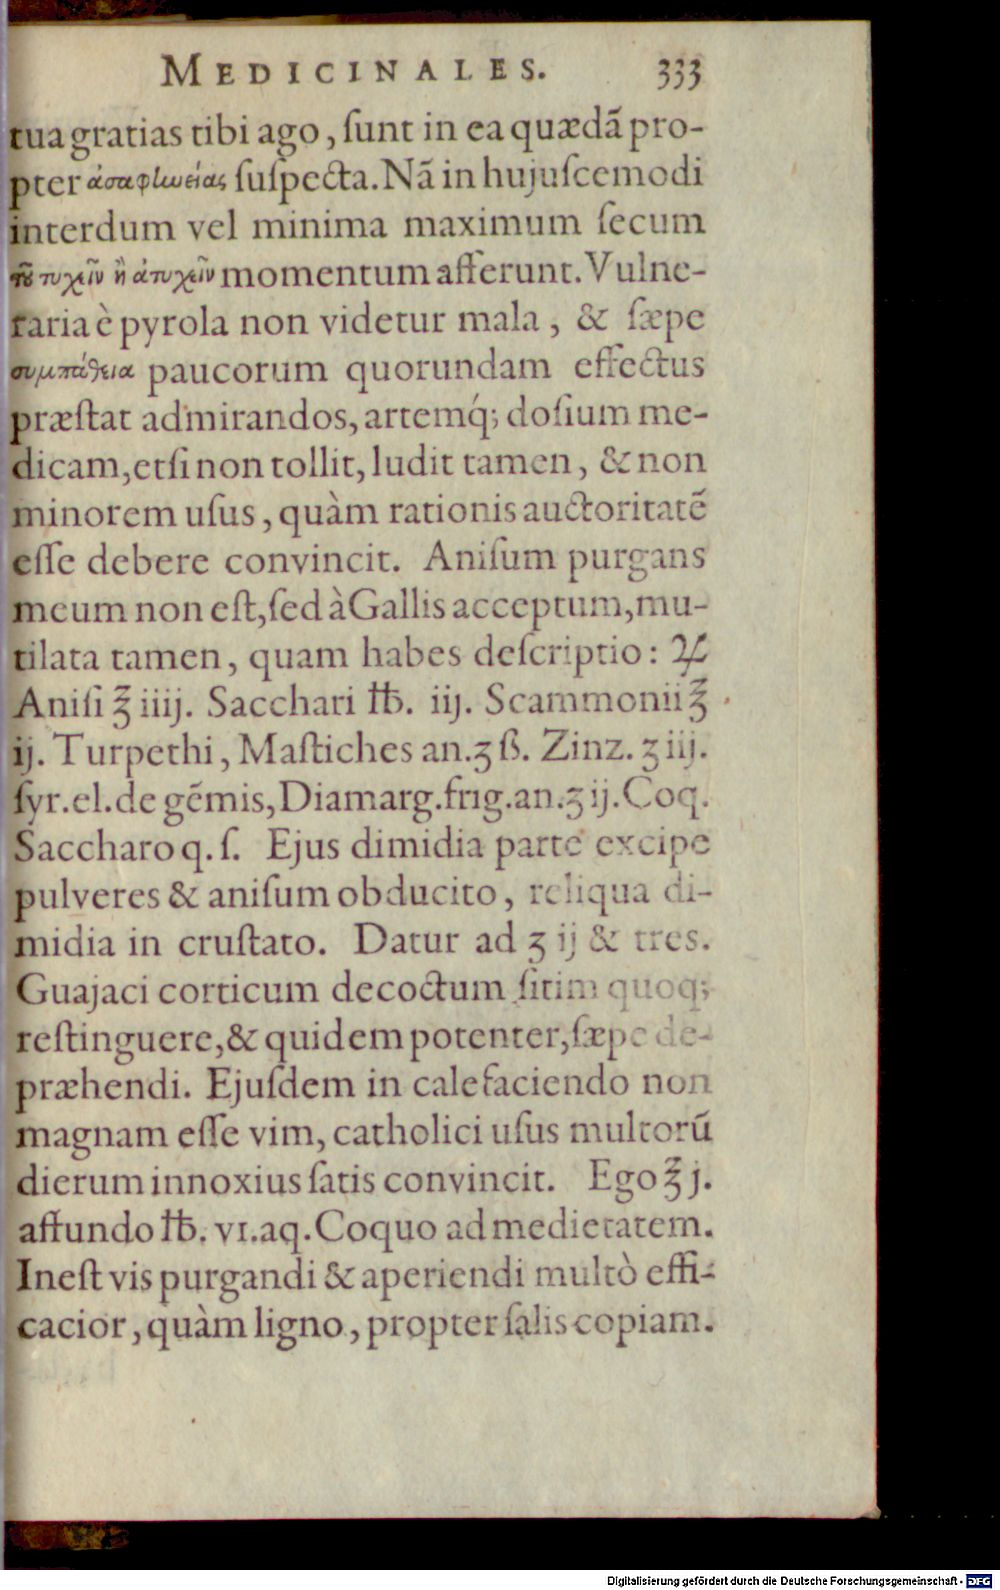 MEDICINALES. 333
tua gratias tibi ago, ſunt in ea quædã pro-
pter ἀσαφηνείας ſuſpecta. Nã in hujuſcemodi
interdum vel minima maximum ſecum
τοῦ τυχεῖν ἢ ἀτυχεῖν momentum afferunt. Vulne-
raria è pyrola non videtur mala, & ſæpe
συμπάθεια paucorum quorundam effectus
præſtat admirandos, artemq́; doſium me-
dicam, etſi non tollit, ludit tamen, & non
minorem uſus, quàm rationis auctoritatẽ
eſſe debere convincit. Aniſum purgans
meum non eſt, ſed à Gallis acceptum, mu-
tilata tamen, quam habes deſcriptio: ♃
Aniſi ℥ iiij. Sacchari ℔. iij. Scammonii ℥
ij. Turpethi, Maſtiches an. ʒ ß. Zinz. ʒ iij.
ſyr. el. de gẽmis, Diamarg. frig. an. ʒ ij. Coq.
Saccharo q. ſ. Ejus dimidia parte excipe
pulveres & aniſum obducito, reliqua di-
midia in cruſtato. Datur ad ʒ ij & tres.
Guajaci corticum decoctum ſitim quoq;
reſtinguere, & quidem potenter, ſæpe de-
præhendi. Ejuſdem in calefaciendo non
magnam eſſe vim, catholici uſus multorũ
dierum innoxius ſatis convincit. Ego ℥ j.
affundo ℔. VI. aq. Coquo ad medietatem.
Ineſt vis purgandi & aperiendi multò effi-
cacior, quàm ligno, propter ſalis copiam.
Digitalisierung gefördert durch die Deutsche Forschungsgemeinschaft - DFG